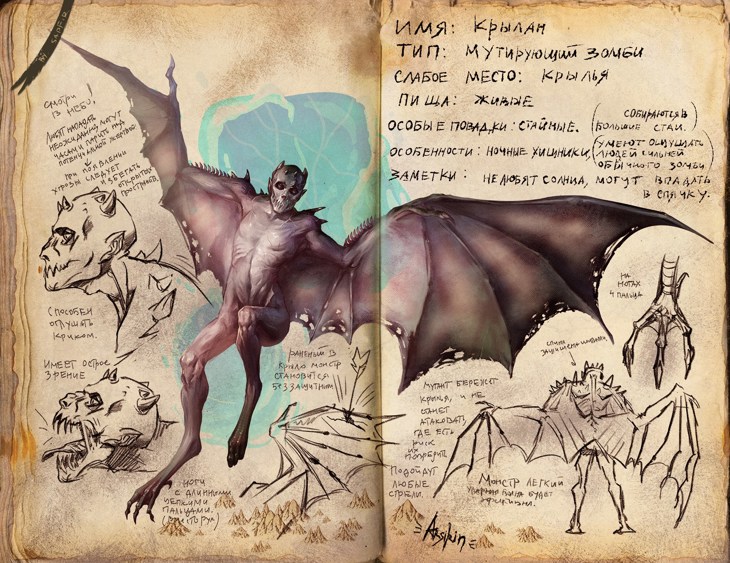 СМОТРИ
В НЕБО!
ЛЮБЯТ НАПАДАТЬ
НЕОЖИДАННО, МОГУТ
ЧАСАМИ ПАРИТЬ НАД
ПОТЕНЦИАЛЬНОЙ ЖЕРТВОЙ.
ПРИ ПОЯВЛЕНИИ
СЛЕДУЕТ
ИЗБЕГАТЬ
ОТКРЫТЫХ
ПРОСТРАНСТВ.
СПОСОБЕН
ОГЛУШАТЬ
КРИКОМ.
ИМЕЕТ ОСТРОЕ
ЗРЕНИЕ
РАНЕННЫЙ В
КРЫЛО МОНСТР
СТАНОВИТСЯ
БЕЗЗАЩИТНЫМ
НОГИ
С ДЛИННЫМИ
ЦЕПКИМИ
ПАЛЬЦАМИ.
ИМЯ: КРЫЛАН
ТИП: МУТИРУЮЩИЙ ЗОМБИ
СЛАБОЕ МЕСТО: КРЫЛЬЯ
ПИЩА: ЖИВЫЕ
ОСОБЫЕ ПОВАДКИ: СТАЙНЫЕ. (СОБИРАЮТСЯ В
БОЛЬШИЕ СТАИ.)
ОСОБЕННОСТИ: НОЧНЫЕ ХИЩНИКИ (УМЕЮТ ОЩУЩАТЬ
ЛЮДЕЙ СИЛЬНЕЙ
ОБЫЧНОГО ЗОМБИ)
ЗАМЕТКИ: НЕ ЛЮБЯТ СОЛНЦА, МОГУТ ВПАДАТЬ
В СПЯЧКУ.
НА
НОГАХ
4 ПАЛЬЦА
СПИНА
ЗАЩИЩЕНА ШИПАМИ
МУТАНТ БЕРЕЖЕТ
КРЫЛЬЯ, И НЕ
СТАНЕТ
АТАКОВАТЬ
ГДЕ ЕСТЬ
РИСК
ИХ
ПОВРЕДИТЬ
ПОДОЙДУТ
ЛЮБЫЕ
СТРЕЛЫ.
МОНСТР ЛЕГКИЙ
БУДЕТ